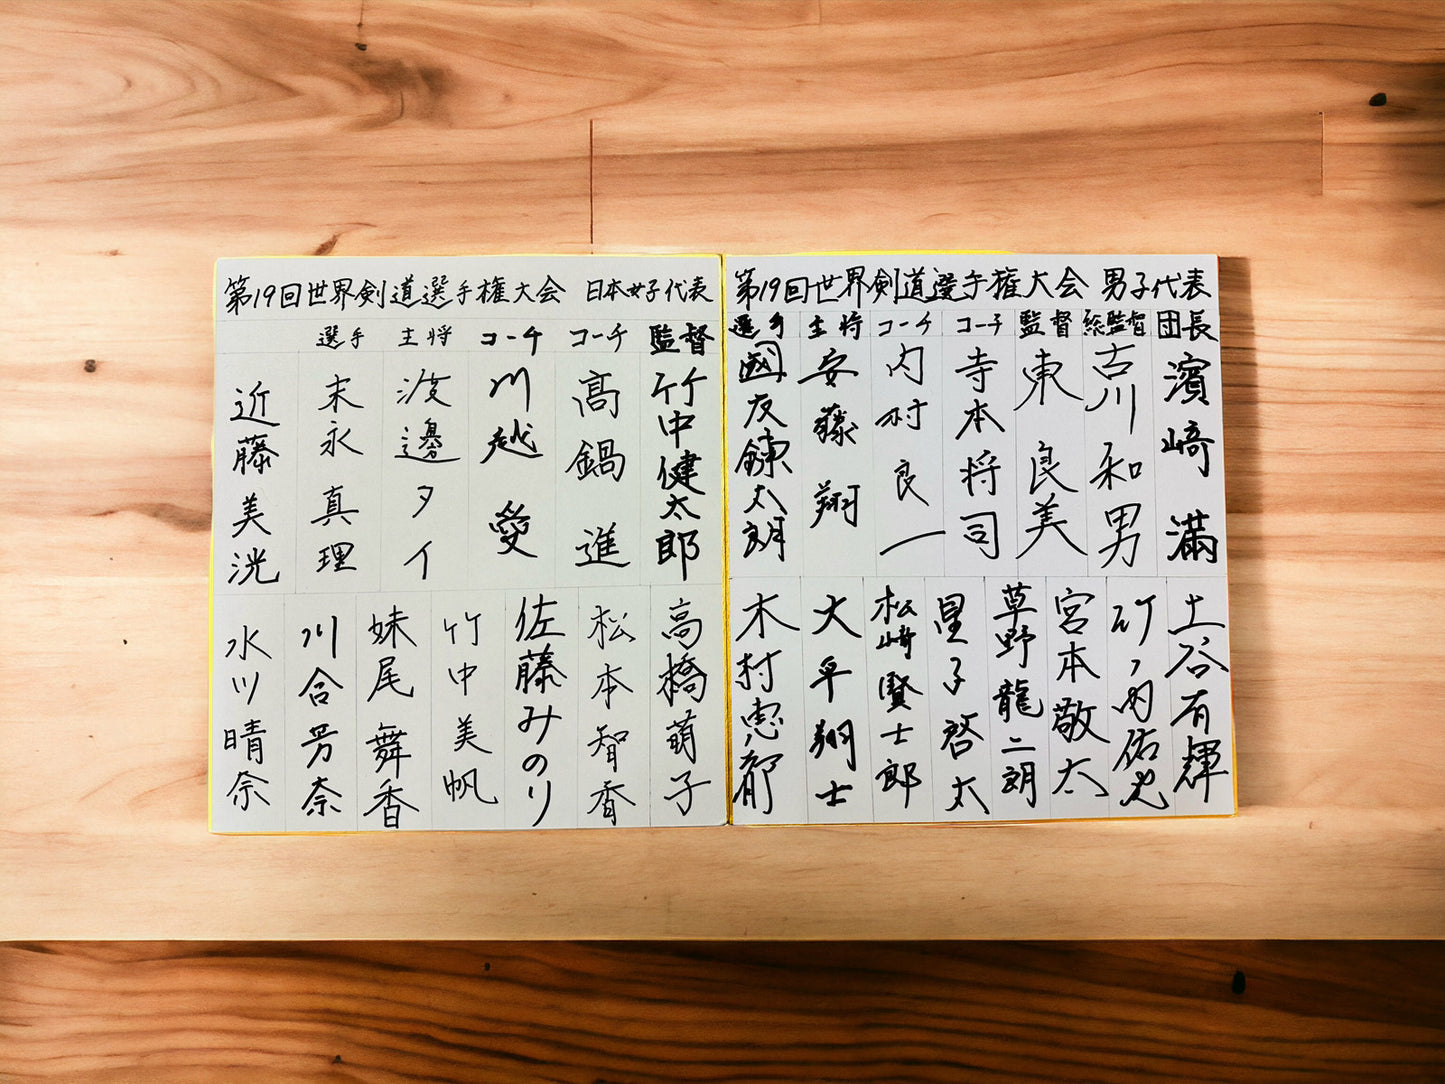 第19回世界剣道選手権大会 男子代表
団長
総監督
監督
コーチ
コーチ
主将
選手
濱﨑 滿
古川和男
東 良美
寺本将司
内村良一
安藤 翔
國友鍊太朗
土谷有輝
竹ノ内佑也
宮本敬太
草野龍二朗
星子啓太
松﨑賢士郎
大平翔士
木村恵都
第19回世界剣道選手権大会 日本女子代表
監督
コーチ
コーチ
主将
選手
竹中健太郎
高鍋 進
川越 愛
渡邊タイ
末永真理
近藤美洸
高橋萌子
松本智香
佐藤みのり
竹中美帆
妹尾舞香
川合芳奈
水川晴奈